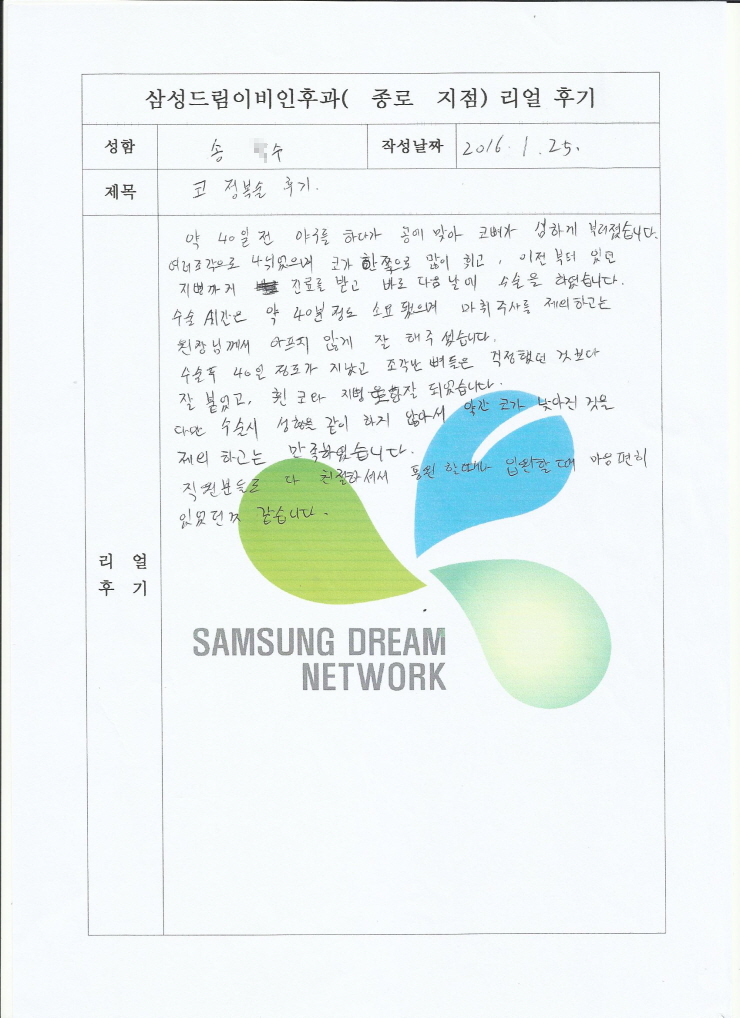 삼성드림이비인후과( 종로 지점) 리얼 후기
성함 송 수 작성날짜 2016. 1. 25.
제목 코 정복술 후기.
약 40일 전 야구를 하다가 공에 맞아 코뼈가 심하게 부러졌습니다.
여러조각으로 나뉘었으며 코가 한쪽으로 많이 휘고, 이전부터 있던
지병까지 진료를 받고 바로 다음날에 수술을 하였습니다.
수술 시간은 약 40분정도 소요됐으며 마취주사를 제외하고는
원장님께서 아프지 않게 잘 해주셨습니다.
수술후 40일 정도가 지났고 조각난 뼈들은 걱정했던 것보다
잘 붙었고, 휜 코와 지병 잘 되었습니다.
다만 수술시 성형을 같이 하지 않아서 약간 코가 낮아진 것을
제외 하고는 만족하였습니다.
직원분들도 다 친절하셔서 통원 할때나 입원할 때 마음 편히
있었던것 같습니다.
리 얼
후 기
SAMSUNG DREAM
NETWORK